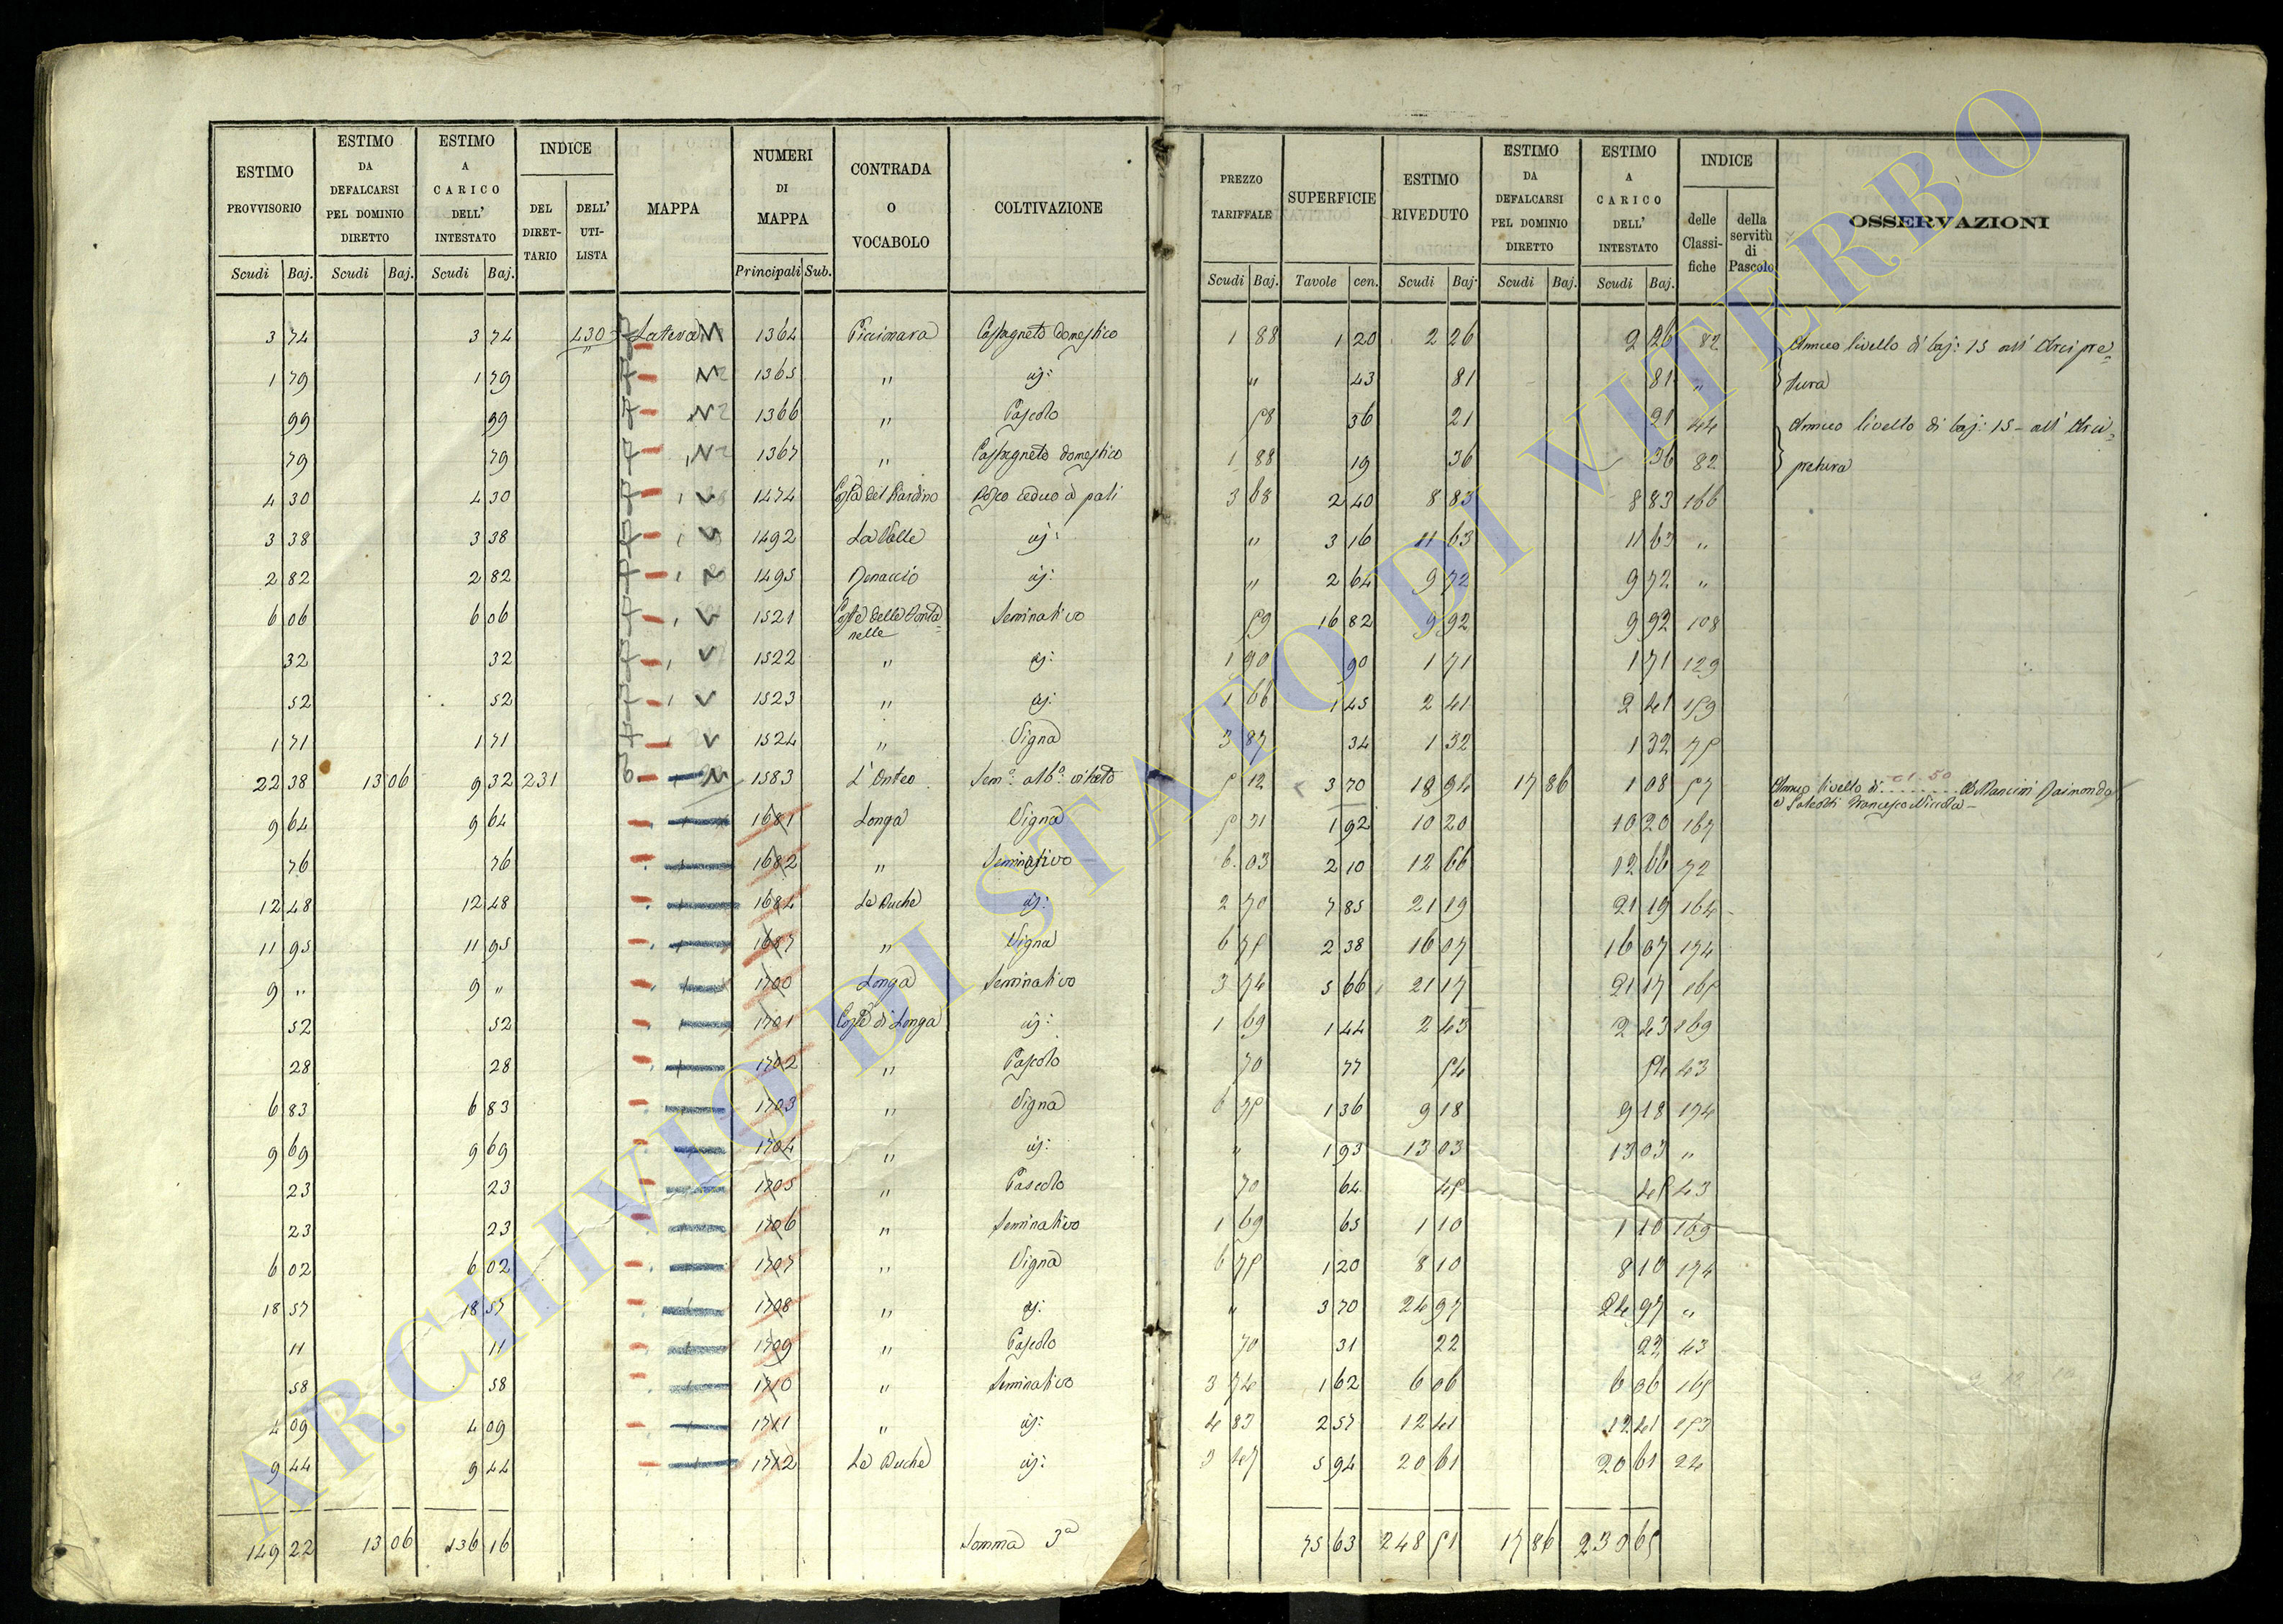 ESTIMO PROVVISORIO
ESTIMO DA DEFALCARSI PEL DOMINIO DIRETTO
ESTIMO A CARICO DELL' INTESTATO
INDICE
DEL DIRETTARIO
DELL' UTILISTA
MAPPA
NUMERI DI MAPPA
CONTRADA O VOCABOLO
COLTIVAZIONE
PREZZO TARIFFALE
SUPERFICIE
ESTIMO RIVEDUTO
ESTIMO DA DEFALCARSI PEL DOMINIO DIRETTO
ESTIMO A CARICO DELL' INTESTATO
INDICE
delle Classifiche
della servitù di Pascolo
OSSERVAZIONI
Scudi Baj. Scudi Baj. Scudi Baj. Principali Sub. Scudi Baj. Tavole cen. Scudi Baj. Scudi Baj. Scudi Baj.
3 74 3 74 430 Latera 1364 Castagneto domestico 1 88 1 20 2 26 2 26 82 Annuo livello di baj: 15 all' Arcipre=
1 79 1 79 1365 " id: " 43 81 81 " tura
99 99 1366 " Pascolo 58 36 21 21 44 Annuo livello di baj: 15 - all' Arci=
79 79 1367 " Castagneto domestico 1 88 19 36 36 82 pretura
4 30 4 30 1474 Bosco ceduo a pali 3 68 2 40 8 83 8 83 166
3 38 3 38 1492 La Valle id: " 3 16 11 63 11 63 "
2 82 2 82 1495 id: " 2 64 9 72 9 72 "
6 06 6 06 1521 Coste delle Fonta=
nelle Seminativo 59 16 82 9 92 9 92 108
32 32 1522 " id: 1 90 90 1 71 1 71 129
52 52 1523 " id: 1 66 1 45 2 41 2 41 159
1 71 1 71 1524 " Vigna 3 87 34 1 32 1 32 75
22 38 13 06 9 32 231 1583 5 12 3 70 18 94 17 86 1 08 57 Annuo livello di
9 64 9 64 1681 Longa Vigna 5 31 1 92 10 20 10 20 167
76 76 1682 " Seminativo 6 03 2 10 12 66 12 66 72
12 48 12 48 1684 Le Buche id: 2 70 7 85 21 19 21 19 164
11 95 11 95 1687 " Vigna 6 75 2 38 16 07 16 07 174
9 " 9 " 1700 Longa Seminativo 3 74 5 66 21 17 21 17 165
52 52 1701 Coste di Longa id: 1 69 1 44 2 43 2 43 169
28 28 1702 " Pascolo 70 77 54 54 43
6 83 6 83 1703 " Vigna 6 75 1 36 9 18 9 18 174
9 69 9 69 1704 " id: " 1 93 13 03 13 03 "
23 23 1705 " Pascolo 70 64 45 45 43
23 23 1706 " Seminativo 1 69 65 1 10 1 10 169
6 02 6 02 1707 " Vigna 6 75 1 20 8 10 8 10 174
18 57 18 57 1708 " id: " 3 70 24 97 24 97 "
11 11 1709 " Pascolo 70 31 22 22 43
58 58 1710 " Seminativo 3 74 1 62 6 06 6 06 165
4 09 4 09 1711 " id: 4 83 2 57 12 41 12 41 153
9 44 9 44 1712 Le Buche id: 3 47 5 94 20 61 20 61 24
149 22 13 06 136 16 Somma 3a 75 63 248 51 17 86 230 65
ARCHIVIO DI STATO DI VITERBO